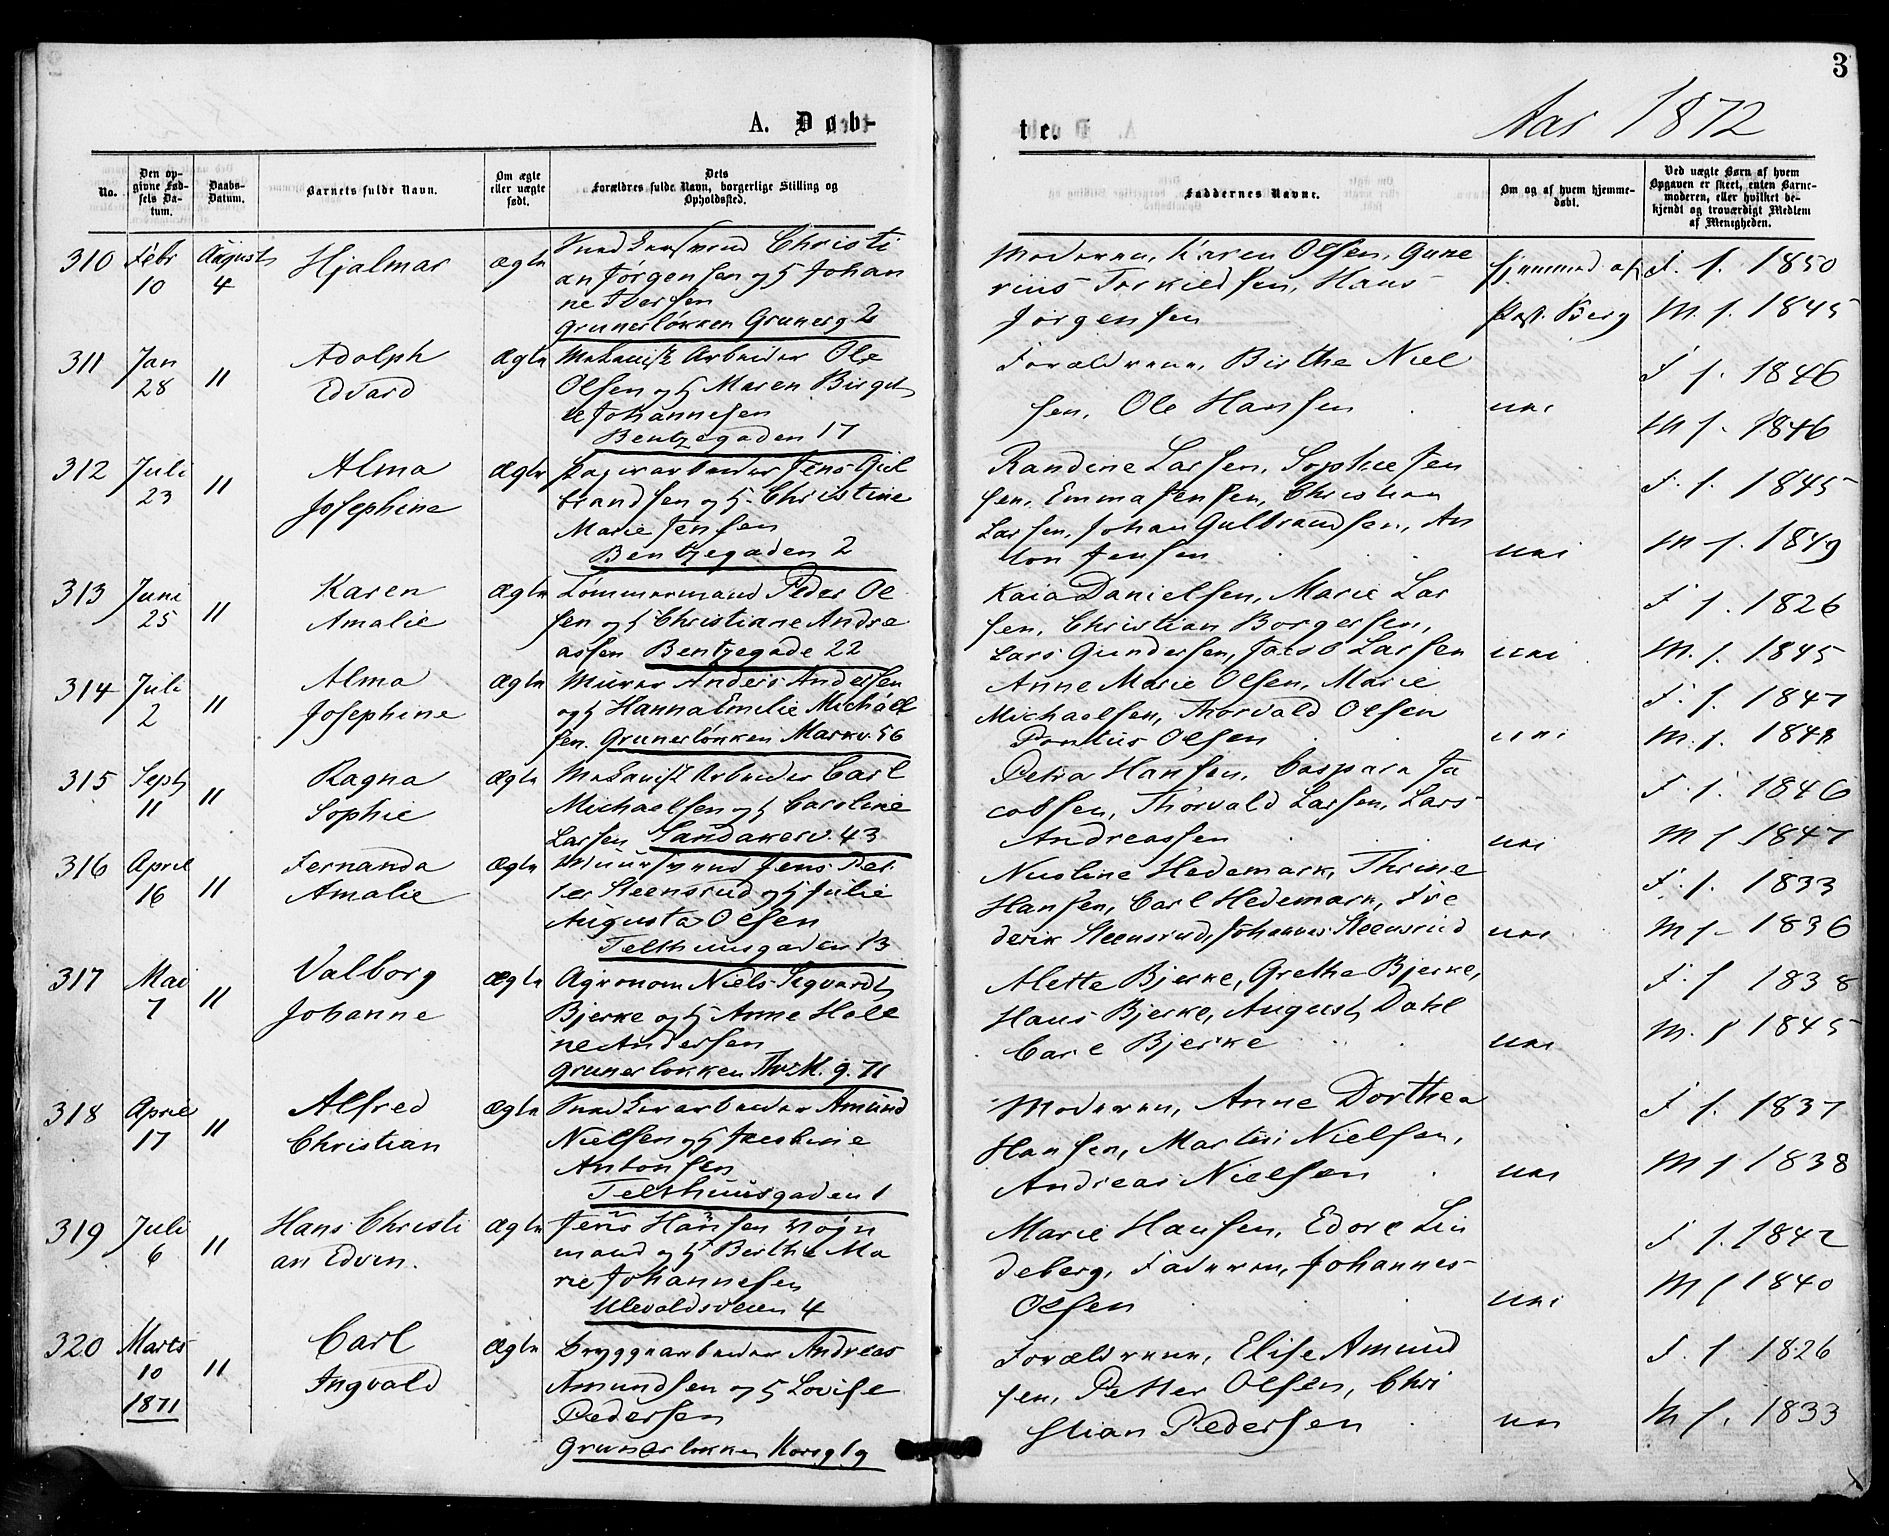 3
A. Døb-
te.
Aar 1872
No.
Den opgivne Fødsels Datum.
Daabs-Datum.
Barnets fulde Navn.
Om ægte eller uægte født.
Dets Forældres fulde Navn, borgerlige Stilling og Opholdssted.
Faddernes Navne.
Om og af hvem hjemmedøbt.
Ved uægte Børn af hvem Opgaven er skeet, enten Barnemoderen, eller hvilket bekjendt og troværdigt Medlem af Menigheden.
310 Febr August Hjalmar ægte Christi
10 4 an Jørgensen og H Johan
ne Iversen
Grunerløkken Grunerg 2
Moderen, Karen Olsen, Gune
rius Torkildsen, Hans
Jörgensen
hjemmed af
Past. Berg
F. f. 1850
M. f. 1845
311 Jan 28 " Adolph ægte Mekanisk Arbeider Ole
Edvard Olsen og H Maren Birgit
te Johannesen
Bentzegaden 17
Forældrene, Birthe Niel
sen, Ole Hansen
nei
F f. 1846
M f. 1846
312 Juli 23 " Alma ægte Papirarbeider Jens Gul
Josephine brandsen og H. Christine
Marie Jensen
Bentzegaden 2
Randine Larsen, Sophie Jen
sen, Emma Jensen, Christian
Larsen, Johan Gulbrandsen, An
ton Jensen
nei
F. f. 1845
M f. 1849
313 Juni 25 " Karen ægte Tømmermand Peder Ol
Amalie sen og H Christiane Andre
assen Bentzegade 22
Kaia Danielsen, Marie Lar
sen, Christian Borgersen,
Lars Gundersen, Jacob Larsen
nei
F f. 1826
M. f. 1845
314 Juli 2 " Alma ægte Murer Anders Andersen
Josephine og H Hanna Emilie Michael
sen. Grunerløkken Markv. 56
Anne Marie Olsen, Marie
Michaelsen, Thorvald Olsen
Pontus Olsen
nei
F. f. 1847
M. f. 1848
315 Sept 11 " Ragna ægte Mekanisk Arbeider Carl
Sophie Michaelsen og H Caroline
Larsen Sandakerv. 43
Petra Hansen, Caspara Ja
cobsen, Thorvald Larsen, Lars
Andreassen
nei
F. f. 1846
M f 1847
316 April 16 " Fernanda ægte Muursvend Jens Pet
Amalie ter Steensrud og H Julie
Augusta Olsen
Telthuusgaden 13
Nicoline Hedemark, Thrine
Hansen, Carl Hedemark, Fre
derik Steensrud, Johannes Steensrud
nei
F. f. 1833
M f. 1836
317 Mai 7 " Valborg ægte Agronom Niels Sigvardt
Johanne Bjerke og H Anne Hele
ne Andersen
Grunerløkken Th. M. g. 71
Alette Bjerke, Grethe Bjerke,
Hans Bjerke, August Dahl
Carl Bjerke
nei
F. f 1838
M. f 1845
318 April 17 " Alfred ægte Amund
Christian Nielsen og H
Antonsen
Telthuusgaden 1
Moderen, Anne Dorthea
Hansen, Martin Nielsen,
Andreas Nielsen
nei
F f. 1837
M f 1838
319 Juli 6 " Hans Christi ægte Jens Hansen Vogn
an Edvin. mand og H Berthe Ma
rie Johannesen
Ulevoldsveien 4
Marie Hansen, Edore Lin
deberg, Faderen, Johannes
Olsen
nei
F f. 1842
M f 1840
320 Marts 10 1871 " Carl ægte Bryggearbeider Andreas
Ingvald Amundsen og H Lovise
Pedersen
Grunerløkken Korsg 19
Forældrene, Elise Amund
sen, Petter Olsen, Chri
stian Pedersen
nei
F. f 1826
M f. 1833